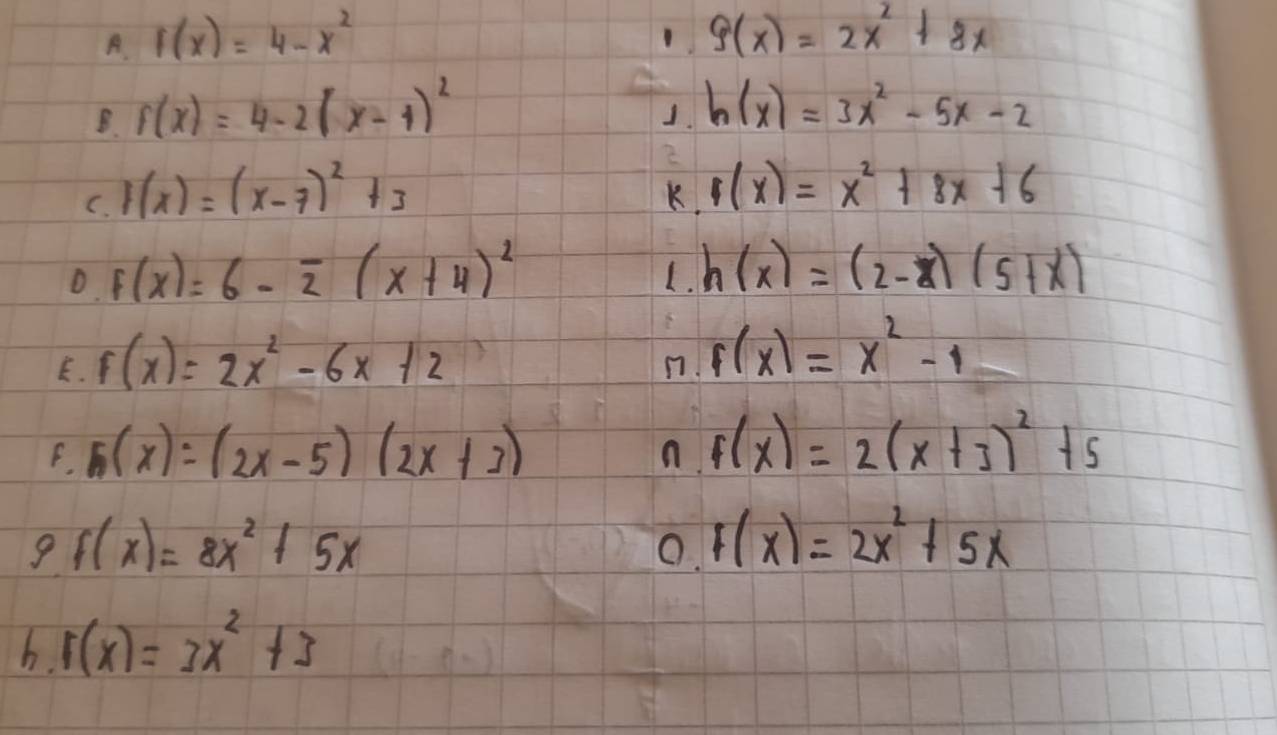 A. f(x) = 4 - x²
B. f(x) = 4 - 2(x - 1)²
C. f(x) = (x - 7)² + 3
D. f(x) = 6 - 2 (x + 4)²
E. f(x) = 2x² - 6x + 2
F. h(x) = (2x - 5) (2x + 3)
g. f(x) = 8x² + 5x
h. f(x) = 3x² + 3
I. g(x) = 2x² + 8x
J. h(x) = 3x² - 5x - 2
K. f(x) = x² + 8x + 6
L. h(x) = (2 - x) (5 + x)
M. f(x) = x² - 1
n. f(x) = 2(x + 3)² + 5
O. f(x) = 2x² + 5x